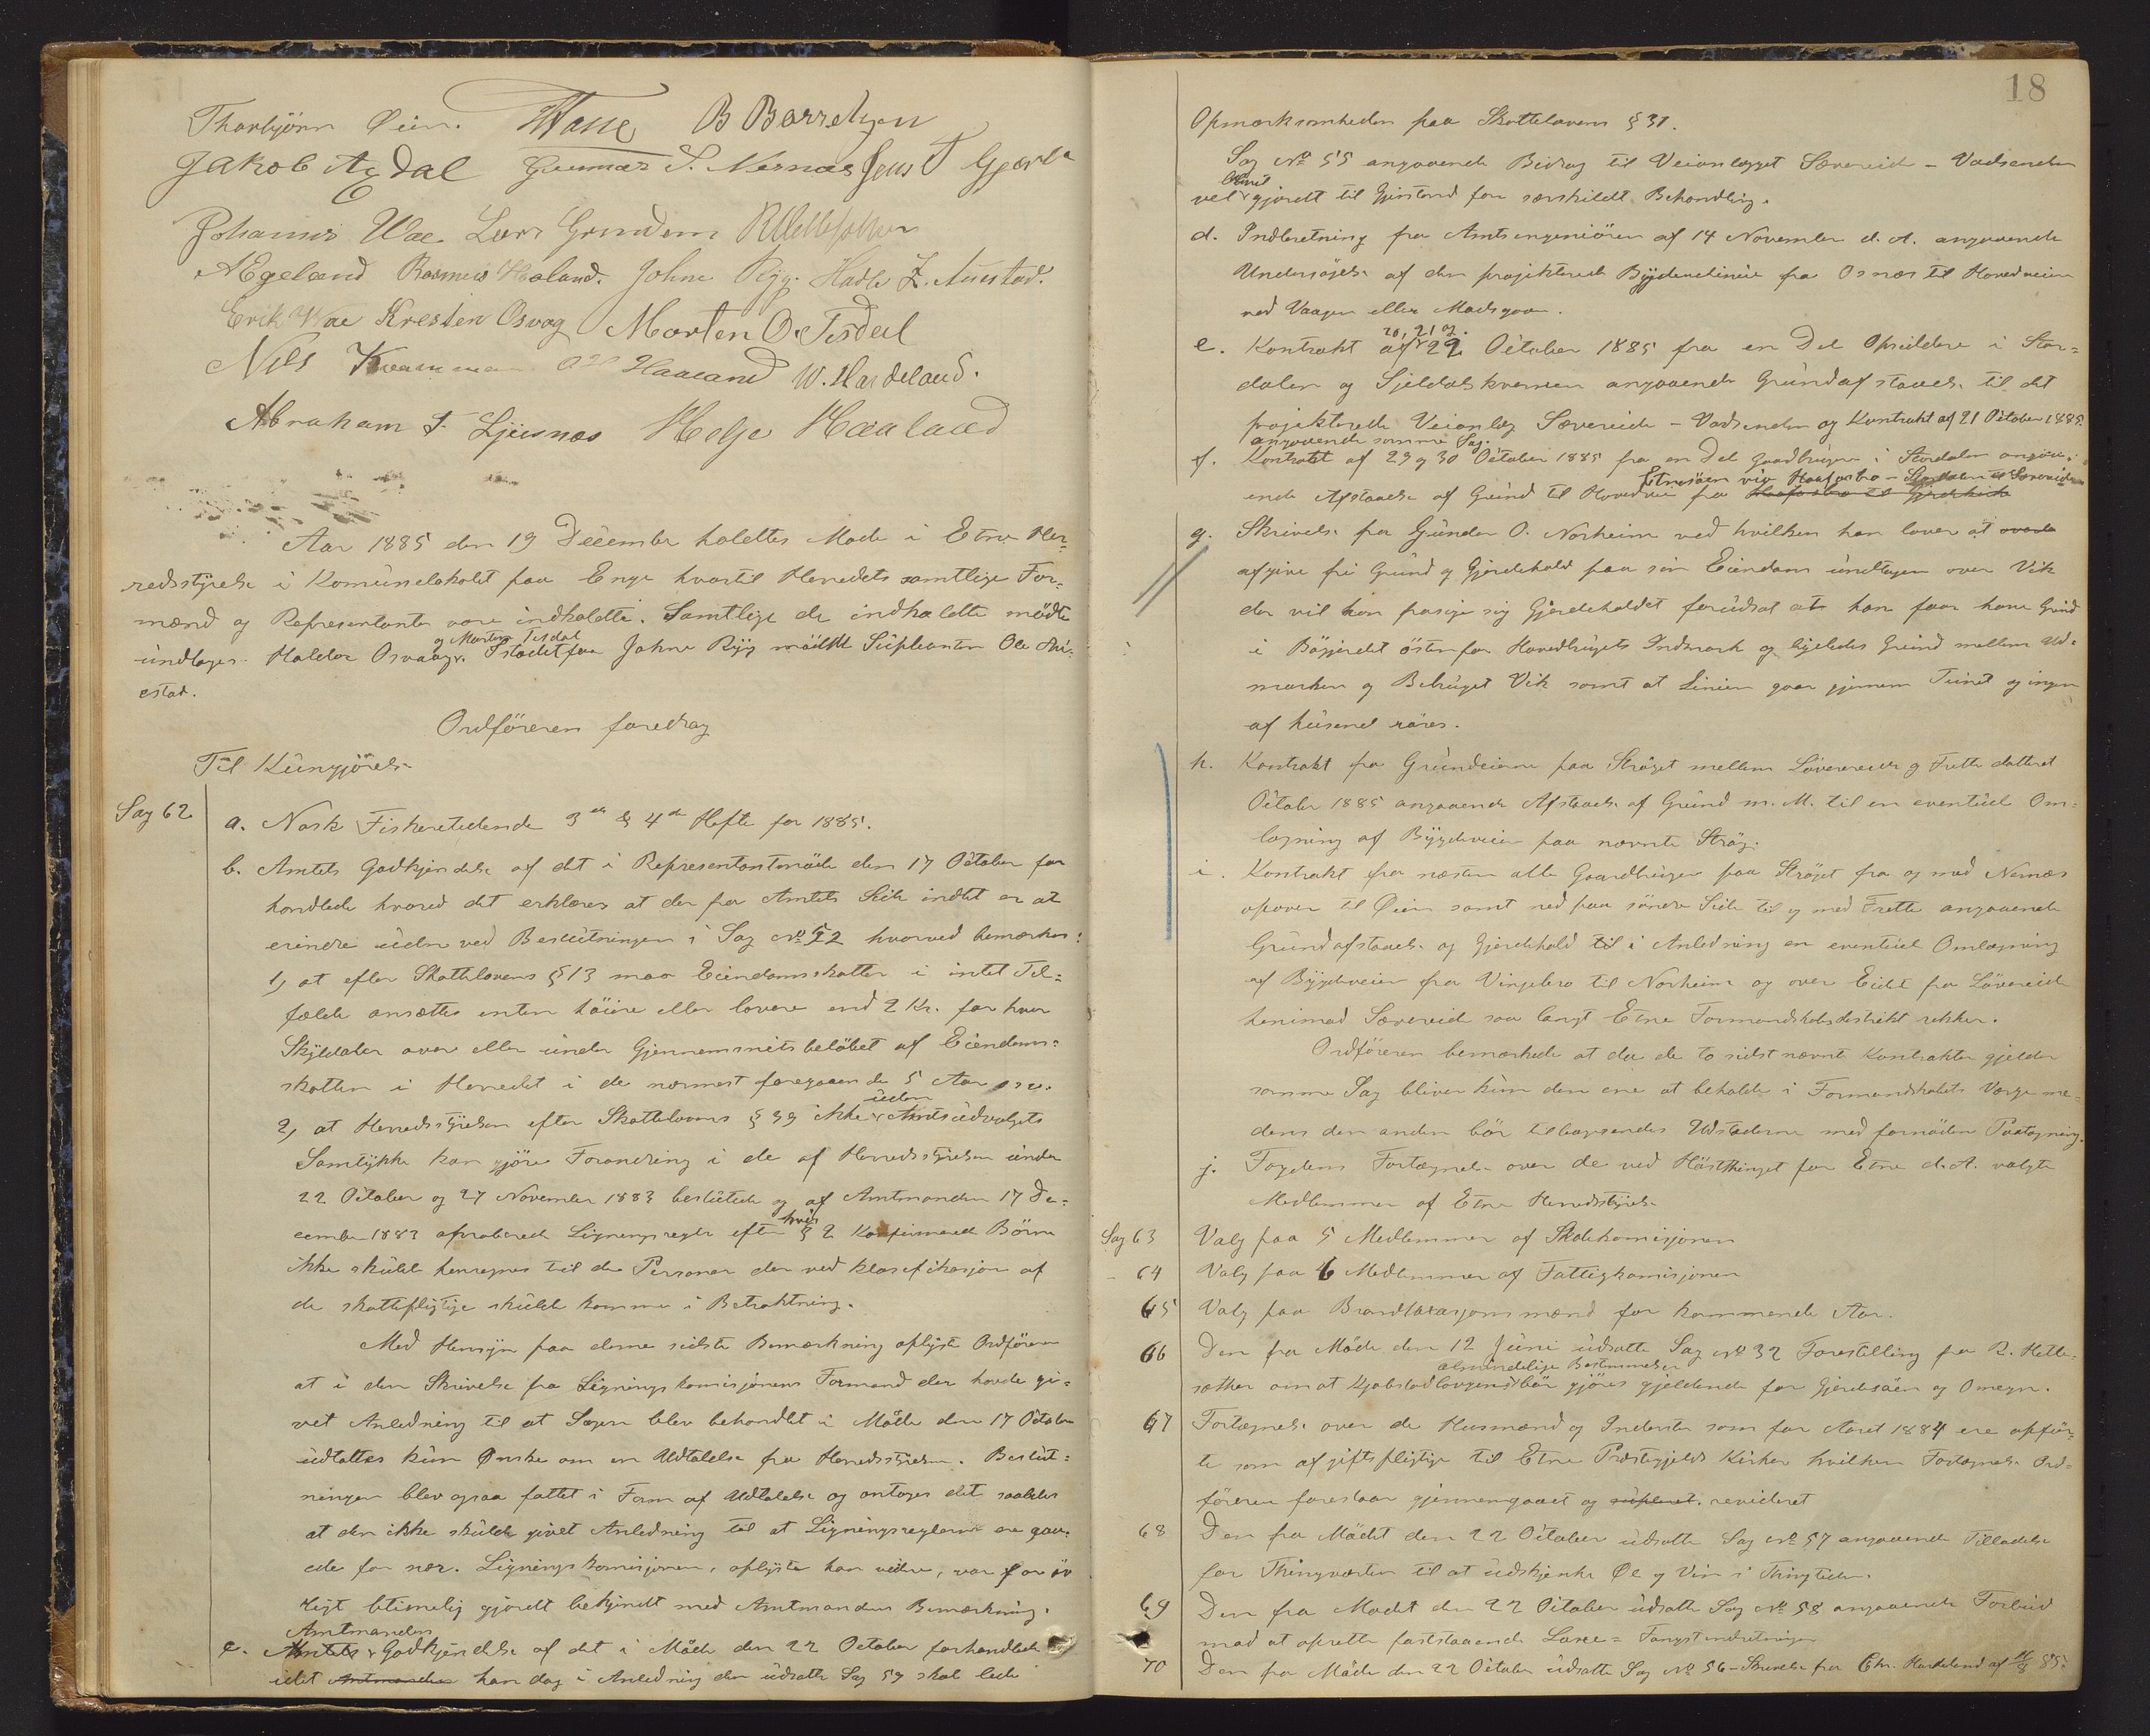 Thorbjörn Øien. B Børretzen
Jakob Aydal Gunnar S. Nernæs Jens T Gjerde
Johannes Wae Lars Grindem
A Egeland Rasmus Haaland. Johne Rygg. Hadle Z. Austad.
Erik Wae Kresten Osvog Morten O. Tesdal
Nils Kvamme O Haaland W. Hardeland.
Abraham T. Ljusnæs Helge Haaland
Aar 1885 den 19 December holdtes Møde i Etne Her-
redsstyrelse i Komunelokalet paa Enge hvortil Herredets samtlige For-
mænd og Representanter vare indkaldte. Samtlige de indkaldte mödte
og Morten Tesdal
undtagen Haldor Osvaag. Istedetfor Johne Rygg mödte Supleanten Ole Au-
estad.
Ordföreren foredrog
Til Kungjörelse
Sag 62. a. Norsk Fiskeretidende 3die & 4de Hefte for 1885.
b. Amtets Godkjendelse af det i Representantmöde den 17 Oktober for
handlede hvorved det erklæres at der fra Amtets Side indtet er at
erindre uden ved Beslutningen i Sag No 52 hvorved bemærkes:
1, at efter Skattelovens § 13 maa Eiendomsskatten i intet Til-
fælde ansættes enten höiere eller lavere end 2 Kr. for hver
Skylddaler over eller under Gjennemsnitsbelöbet af Eiendoms-
skatten i Herredet i de nærmest foregaaende 5 Aar o s v.
uden
2, at Herredsstyrelsen efter Skattelovens § 39 ikke Amtsudvalgets
Samtykke kan gjöre Forandring i de af Herredsstyrelsen under
22 Oktober og 27 November 1883 besluttede og af Amtmanden 17 De-
hvis
cember 1883 aproberede Ligningsregler efter § 2 Konfirmerede Börn
ikke skulde henregnes til de Personer der ved klassefikasjon af
de skattepligtige skulde komme i Betraktning.
Med Hensyn paa denne sidste Bemærkning oplyste Ordföreren
at i den Skrivelse fra Ligningskomisjonens Formand der havde gi-
vet Anledning til at Sagen blev behandlet i Möde den 17 Oktober
udtaltes kun Ønske om en Udtalelse fra Herredsstyrelsen. Beslut-
ningen blev ogsaa fattet i Form af Udtalelse og antages det saaledes
at den ikke skulde givet Anledning til at Ligningsreglerne ere gaa-
ede for nær. Ligningskomisjonen, oplyste han videre, var för
betimelig gjordt bekjendt med Amtmandens Bemærkning.
Amtmandens
c. Amtets Godkjendelse af det i Möde den 22 October forhandlede
idet Amtmanden han dog i Anledning den udsatte Sag 59 skal lede
18
Opmærksomheden paa Skattelovens § 31.
Sag No 55 angaaende Bidrag til Veianlægget Sævereid - Vadsenden
blevet
vel gjordt til Gjenstand for særskildt Behandling.
d. Indberetning fra Amtsingeniören af 14 November d. A. angaaende
Undersögelse af den projekterede Bygdeveilinie fra Osnæs til Hovedveien
ved Vaagen eller Madsgaard.
20, 21 og
e. Kontrakt af 22 October 1885 fra en Del Opsiddere i Stor-
dalen og Sjeldalskvernen angaaende Grundafstaaelse til det
projekterede Veianlæg Sævereide - Vadsenden og Kontrakt af 21 Oktober 1885
angaaende samme Sag.
f. Kontrakt af 29 og 30 October 1885 fra en Del Gaardbrugere i Stordalen angaa-
Etnesöen via Haafosbro - Stordalen til Sævereide
ende Afstaaelse af Grund til Hovedvei fra Haafosbro til
g. Skrivelse fra Gunder O. Norheim ved hvilken han lover at
afgive fri Grund og Gjerdehold paa sin Eiendom undtagen over Vik
der vil han frasige sig Gjerdeholdet forudsat at han faar have Grind
i Bögjerdet östenfor Hovedbrugets Indmark og ligeledes Grind mellem Ud-
marken og Bebruget Vik samt at Linien gaar gjennem Tunet og ingen
af husene röres.
h. Kontrakt fra Grundeierne paa Ströget mellem Lövereide og Frette datteret
October 1885 angaaende Afstaaelse af Grund m. M. til en eventuel Om-
lægning af Bygdeveien paa nævnte Strög.
i. Kontrakt fra næsten alle Gaardbrugere paa Ströget fra og med Nernæs
opover til Øien samt ned paa söndre Side til og med Frette angaaende
Grundafstaaelse og Gjerdehold til i Anledning en eventuel Omlægning
af Bygdeveien fra Vingebro til Norheim og over Eidet fra Lövereide
henimod Sævereid saa langt Etne Formandskabsdistrikt rekker.
Ordföreren bemærkede at da de to sidst nævnte Kontrakter gjelder
samme Sag bliver kun den ene at beholde i Formandskabets Værge me-
dens den anden bör tilbagesendes Udstederne med fornöden Paategning.
j. Fogdens Fortegnelse over de ved Höstthinget for Etne d. A. valgte
Medlemmer af Etne Herredsstyrelse
Sag 63 Valg paa 5 Medlemmer af Skolekomisjonen
- 64 Valg paa 6 Medlemmer af Fattigkomisjonen
65 Valg paa Brandtaxasjonsmænd for kommende Aar.
66 Den fra Möde den 12 Juni udsatte Sag No 32 Forestilling fra R. Hette-
almindelige Bestemmelser
sæther om at Kjobstadlovgivnings bör gjöres gjeldende for Gjerdesöen og Omegn.
67 Fortegnelse over de Husmænd og Inderster som for Aaret 1884 ere opför-
te som afgiftspligtige til Etne Præstegjelds Kirker hvilken Fortegnelse Ord-
föreren foreslaar gjennemgaaet og revideret
68 Den fra Mödet den 22 October udsatte Sag No 57 angaaende Tilladelse
for Thingværten til at udskjenke Øl og Vin i Thingtiden.
69 Den fra Modet den 22 October udsatte Sag No 58 angaaende Forbud
mod at oprette faststaaende Laxe-Fangstindretninger
70 Den fra Möde den 22 October udsatte Sag No 56 - Skrivelse fra Chr. Hardeland af 85.